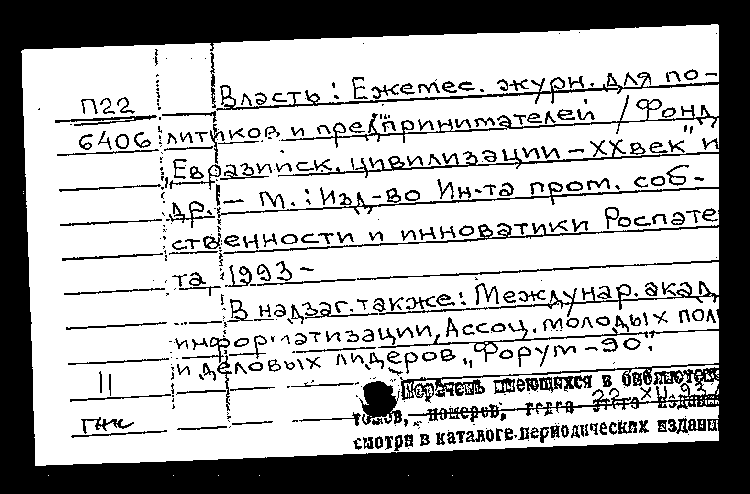 П22
6406
Власть: Ежемес. журн. для по-
литиков и предпринимателей / Фонд
"Евразийск. цивилизации – XX век" и
др. – М.: Изд-во Ин-та пром. соб-
ственности и инноватики Роспате
та, 1993 –
В надзаг. также: Междунар. акад.
информатизации, Ассоц. молодых пол
и деловых лидеров „Форум – 90".
11
Перечень имеющихся в библиотек
22 XII 93
томов, номеров, года этого издани
смотри в каталоге периодических издани